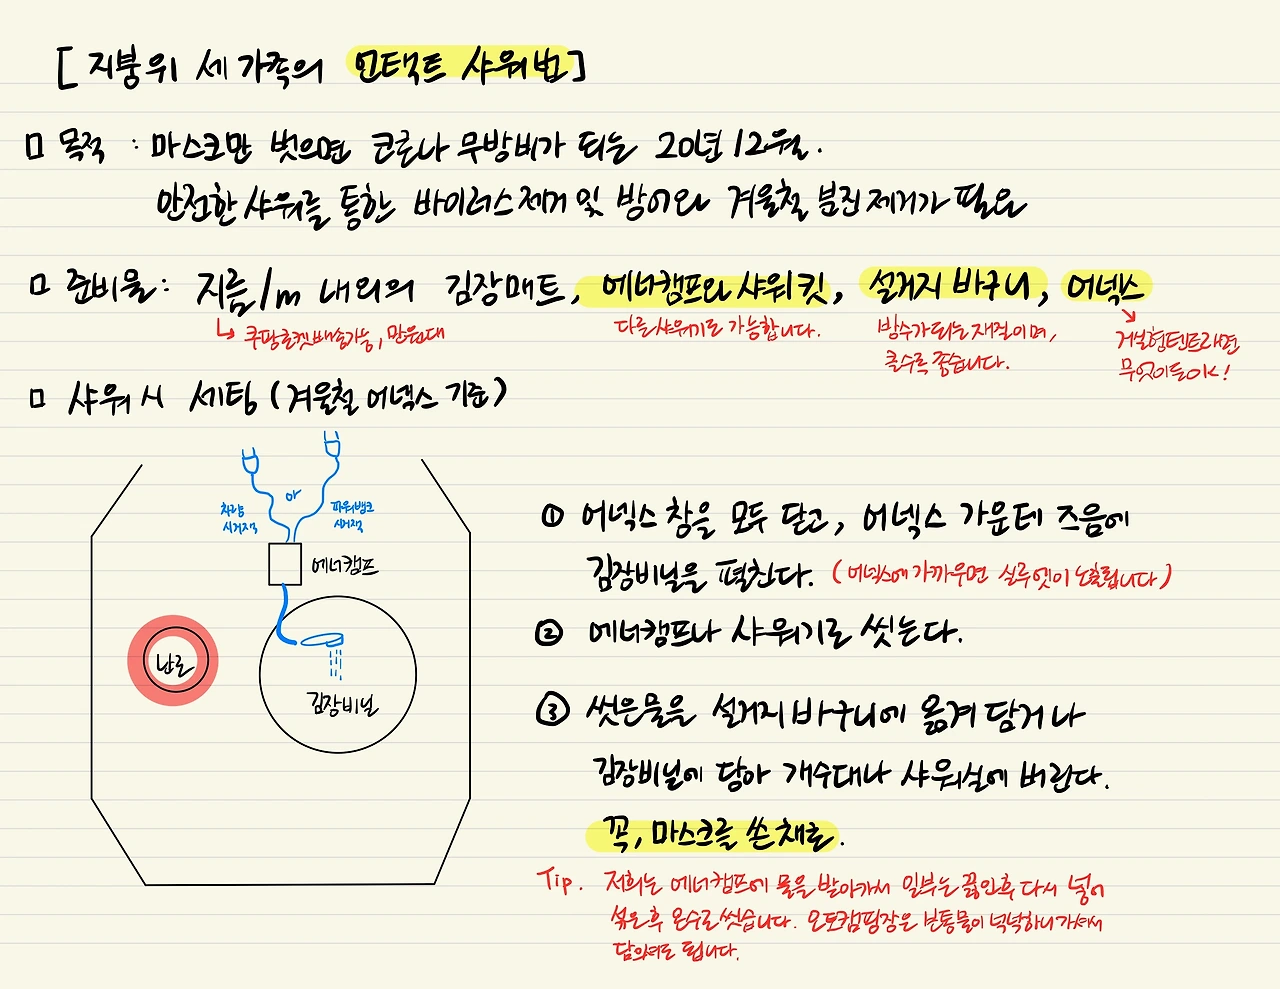 [ 지붕위 세가족의 언택트 샤워법 ]
□ 목적 : 마스크만 벗으면 코로나 무방비가 되는 20년 12월.
안전한 샤워를 통한 바이러스제거 및 방어와 겨울철 분진제거가 필요
□ 준비물 : 지름 1m 내외의 김장매트, 에너캠프와 샤워킷, 설거지 바구니, 어넥스
↳ 쿠팡로켓배송가능, 만원대
다른샤워기로 가능합니다.
방수가 되는 재질이며,
클수록 좋습니다.
거실형텐트라면
무엇이든OK!
□ 샤워 시 세팅 (겨울철 어넥스 기준)
차량
시거잭
or
파워뱅크
시거잭
에너캠프
난로
김장비닐
① 어넥스 창을 모두 닫고, 어넥스 가운데 즈음에
김장비닐을 펼친다. (어넥스에 가까우면 실루엣이 노출됩니다)
② 에너캠프나 샤워기로 씻는다.
③ 씻은물을 설거지 바구니에 옮겨 담거나
김장비닐에 담아 개수대나 샤워실에 버린다.
꼭, 마스크를 쓴 채로.
Tip. 저희는 에너캠프에 물을 받아가서 일부는 끓인후 다시 넣어
섞은후 온수로 씻습니다. 오토캠핑장은 보통물이 넉넉하니 가셔서
담으셔도 됩니다.